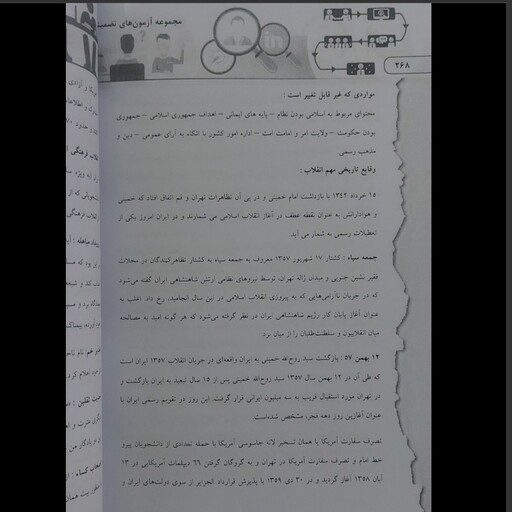 مجموعه آزمون‌های تضمینی
۲۶۸
مواردی که غیر قابل تغییر است :
محتوای مربوط به اسلامی بودن نظام – پایه های ایمانی – اهداف جمهوری اسلامی – جمهوری
بودن حکومت – ولایت امر و امامت امت – اداره امور کشور با اتکاء به آرای عمومی – دین و
مذهب رسمی.
وقایع تاریخی مهم انقلاب :
۱۵ خرداد ۱۳۴۲ با بازداشت امام خمینی و در پی آن تظاهرات تهران و قم اتفاق افتاد که خمینی
و هوادارانش به عنوان نقطه عطف در آغاز انقلاب اسلامی می شمارند و در ایران امروز یکی از
تعطیلات رسمی به شمار می آید.
جمعه سیاه : کشتار ۱۷ شهریور ۱۳۵۷ معروف به جمعه سیاه به کشتار تظاهرکنندگان در محلات
فقیر نشین جنوبی و میدان ژاله تهران، توسط نیروهای نظامی ارتش شاهنشاهی ایران گفته می‌شود
که در جریان ناآرامی‌هایی که به پیروزی انقلاب اسلامی در این سال انجامید، رخ داد. اغلب به
عنوان آغاز پایان کار رژیم شاهنشاهی ایران در نظر گرفته می‌شود که هر گونه امید به مصالحه
میان انقلابیون و سلطنت‌طلبان را از میان برد.
۱۲ بهمن ۵۷ : بازگشت سید روح‌الله خمینی به ایران واقعه‌ای در جریان انقلاب ۱۳۵۷ ایران است
که طی آن در ۱۲ بهمن سال ۱۳۵۷ سید روح‌الله خمینی پس از ۱۵ سال تبعید به ایران بازگشت و
در تهران مورد استقبال قریب به سه میلیون ایرانی قرار گرفت. این روز در تقویم رسمی ایران با
عنوان آغازین روز دهه فجر، مشخص شده‌است.
تصرف سفارت آمریکا یا همان تسخیر لانه جاسوسی آمریکا با حمله تعدادی از دانشجویان پیرو
خط امام و تصرف سفارت آمریکا در تهران و به گروگان گرفتن ۶۶ دیپلمات آمریکایی در ۱۳
آبان ۱۳۵۸ آغاز گردید و در ۳۰ دی ۱۳۵۹ با پذیرش قرارداد الجزایر از سوی دولت‌های ایران و